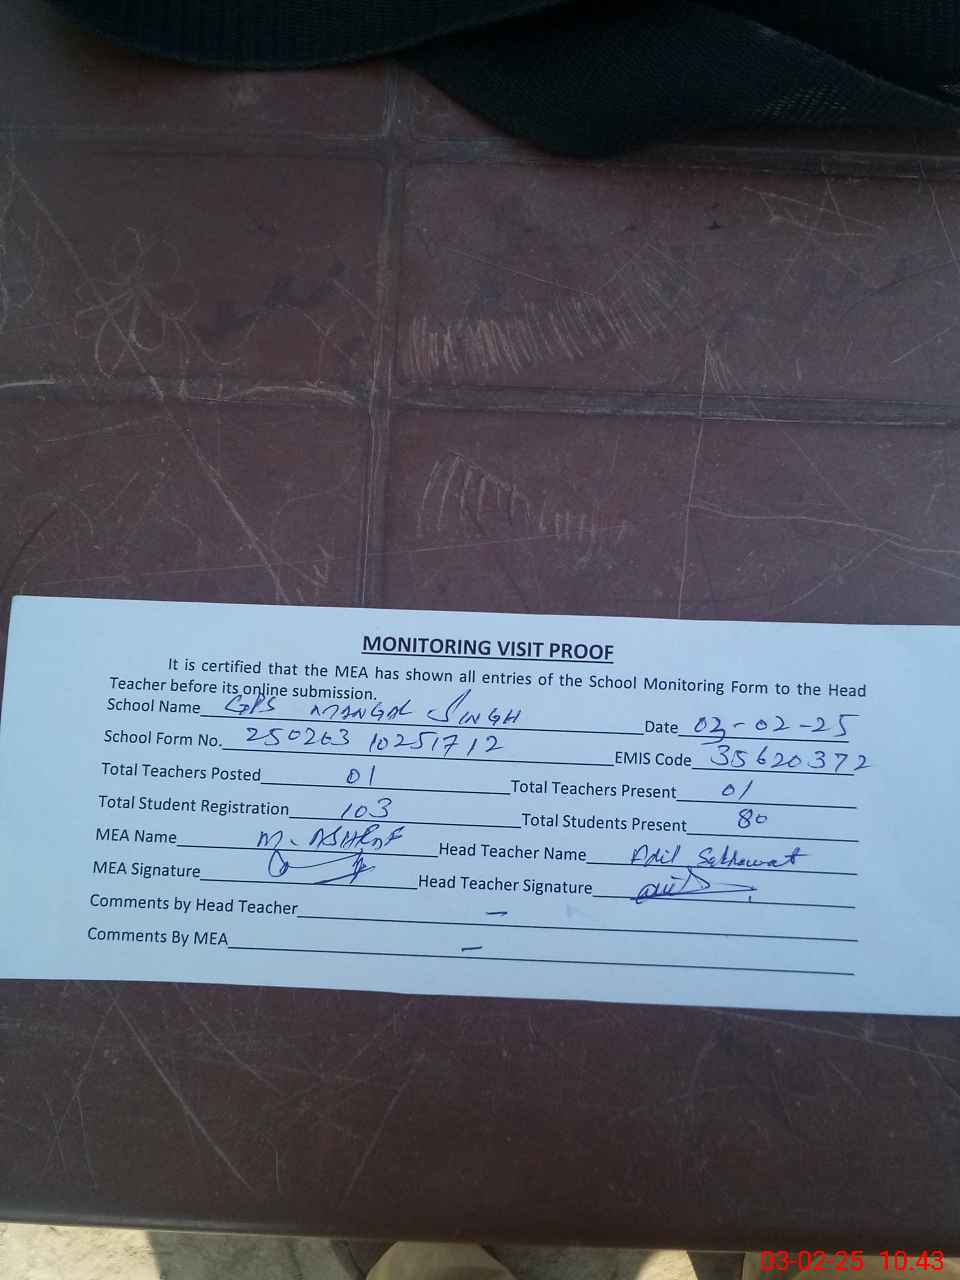 MONITORING VISIT PROOF
It is certified that the MEA has shown all entries of the School Monitoring Form to the Head
Teacher before its online submission.
School Name GPS MANGAL SINGH Date 03-02-25
School Form No. 250203 10251712 EMIS Code 35620372
Total Teachers Posted 01 Total Teachers Present 01
Total Student Registration 103 Total Students Present 80
MEA Name M. ASHRAF Head Teacher Name Adil Sakhawat
MEA Signature Head Teacher Signature
Comments by Head Teacher –
Comments By MEA –
03-02-25 10.43